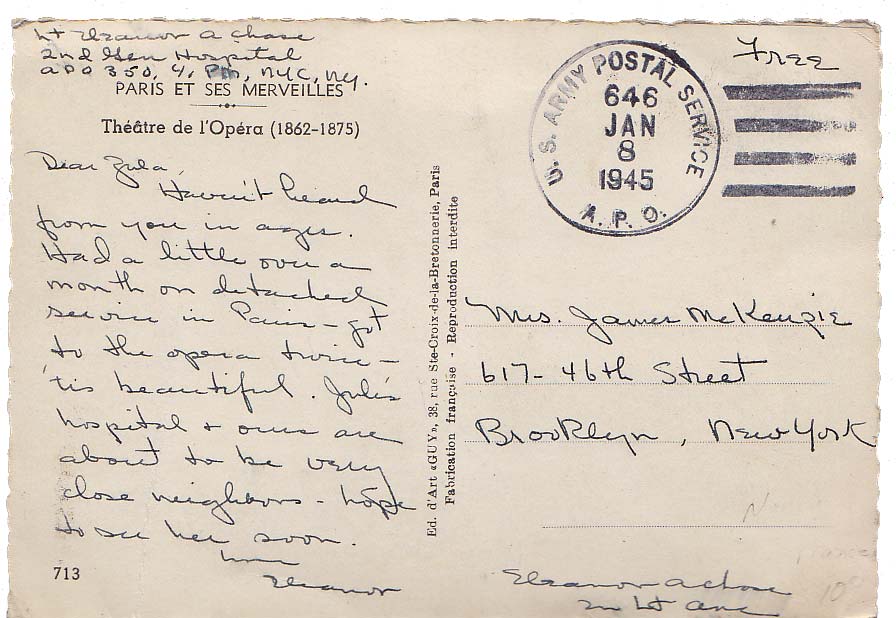 Lt Eleanor A Chase
2nd Gen Hospital
APO 350, % PM, NYC, NY.
PARIS ET SES MERVEILLES
Théâtre de l'Opéra (1862-1875)
Dear Zula,
Haven't heard
from you in ages.
Had a little over a
month on detached
service in Paris - got
to the opera twice -
'tis beautiful. Jule's
hospital + ours are
about to be very
close neighbors - hope
to see her soon.
Eleanor
713
Ed. d'Art «GUY», 38, rue Ste-Croix-de-la-Bretonnerie, Paris
Fabrication française - Reproduction interdite
Free
U. S. ARMY POSTAL SERVICE
646
JAN
8
1945
A. P. O.
Mrs. James McKenzie
617-46th Street
Brooklyn, New York
Eleanor A Chase
2n Lt ANC